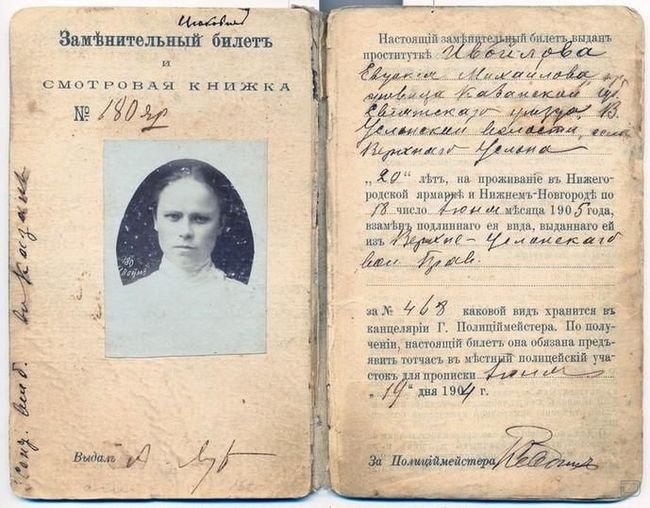 Замѣнительный билетъ
и
СМОТРОВАЯ КНИЖКА
№ 180 яр
180
Выдалъ
Настоящій замѣнительный билетъ выданъ
проституткѣ Ивойлова
Евдокія Михайлова кре
стьянка Казанской губ
Свіяжскаго уѣзда, В.
Услонской волости, села
Верхняго Услона
„20“ лѣтъ, на проживаніе въ Нижего-
родской ярмаркѣ и Нижнемъ-Новгородѣ по
18 число Іюня мѣсяца 1905 года,
взамѣнъ подлиннаго ея вида, выданнаго ей
изъ Верхне-Услонскаго
вол Прав.
за № 468 каковой видъ хранится въ
канцеляріи Г. Полиціймейстера. По полу-
ченіи, настоящій билетъ она обязана предъ-
явить тотчасъ въ мѣстный полицейскій уча-
стокъ для прописки Іюня
„19“ дня 1904 г.
За Полиціймейстера